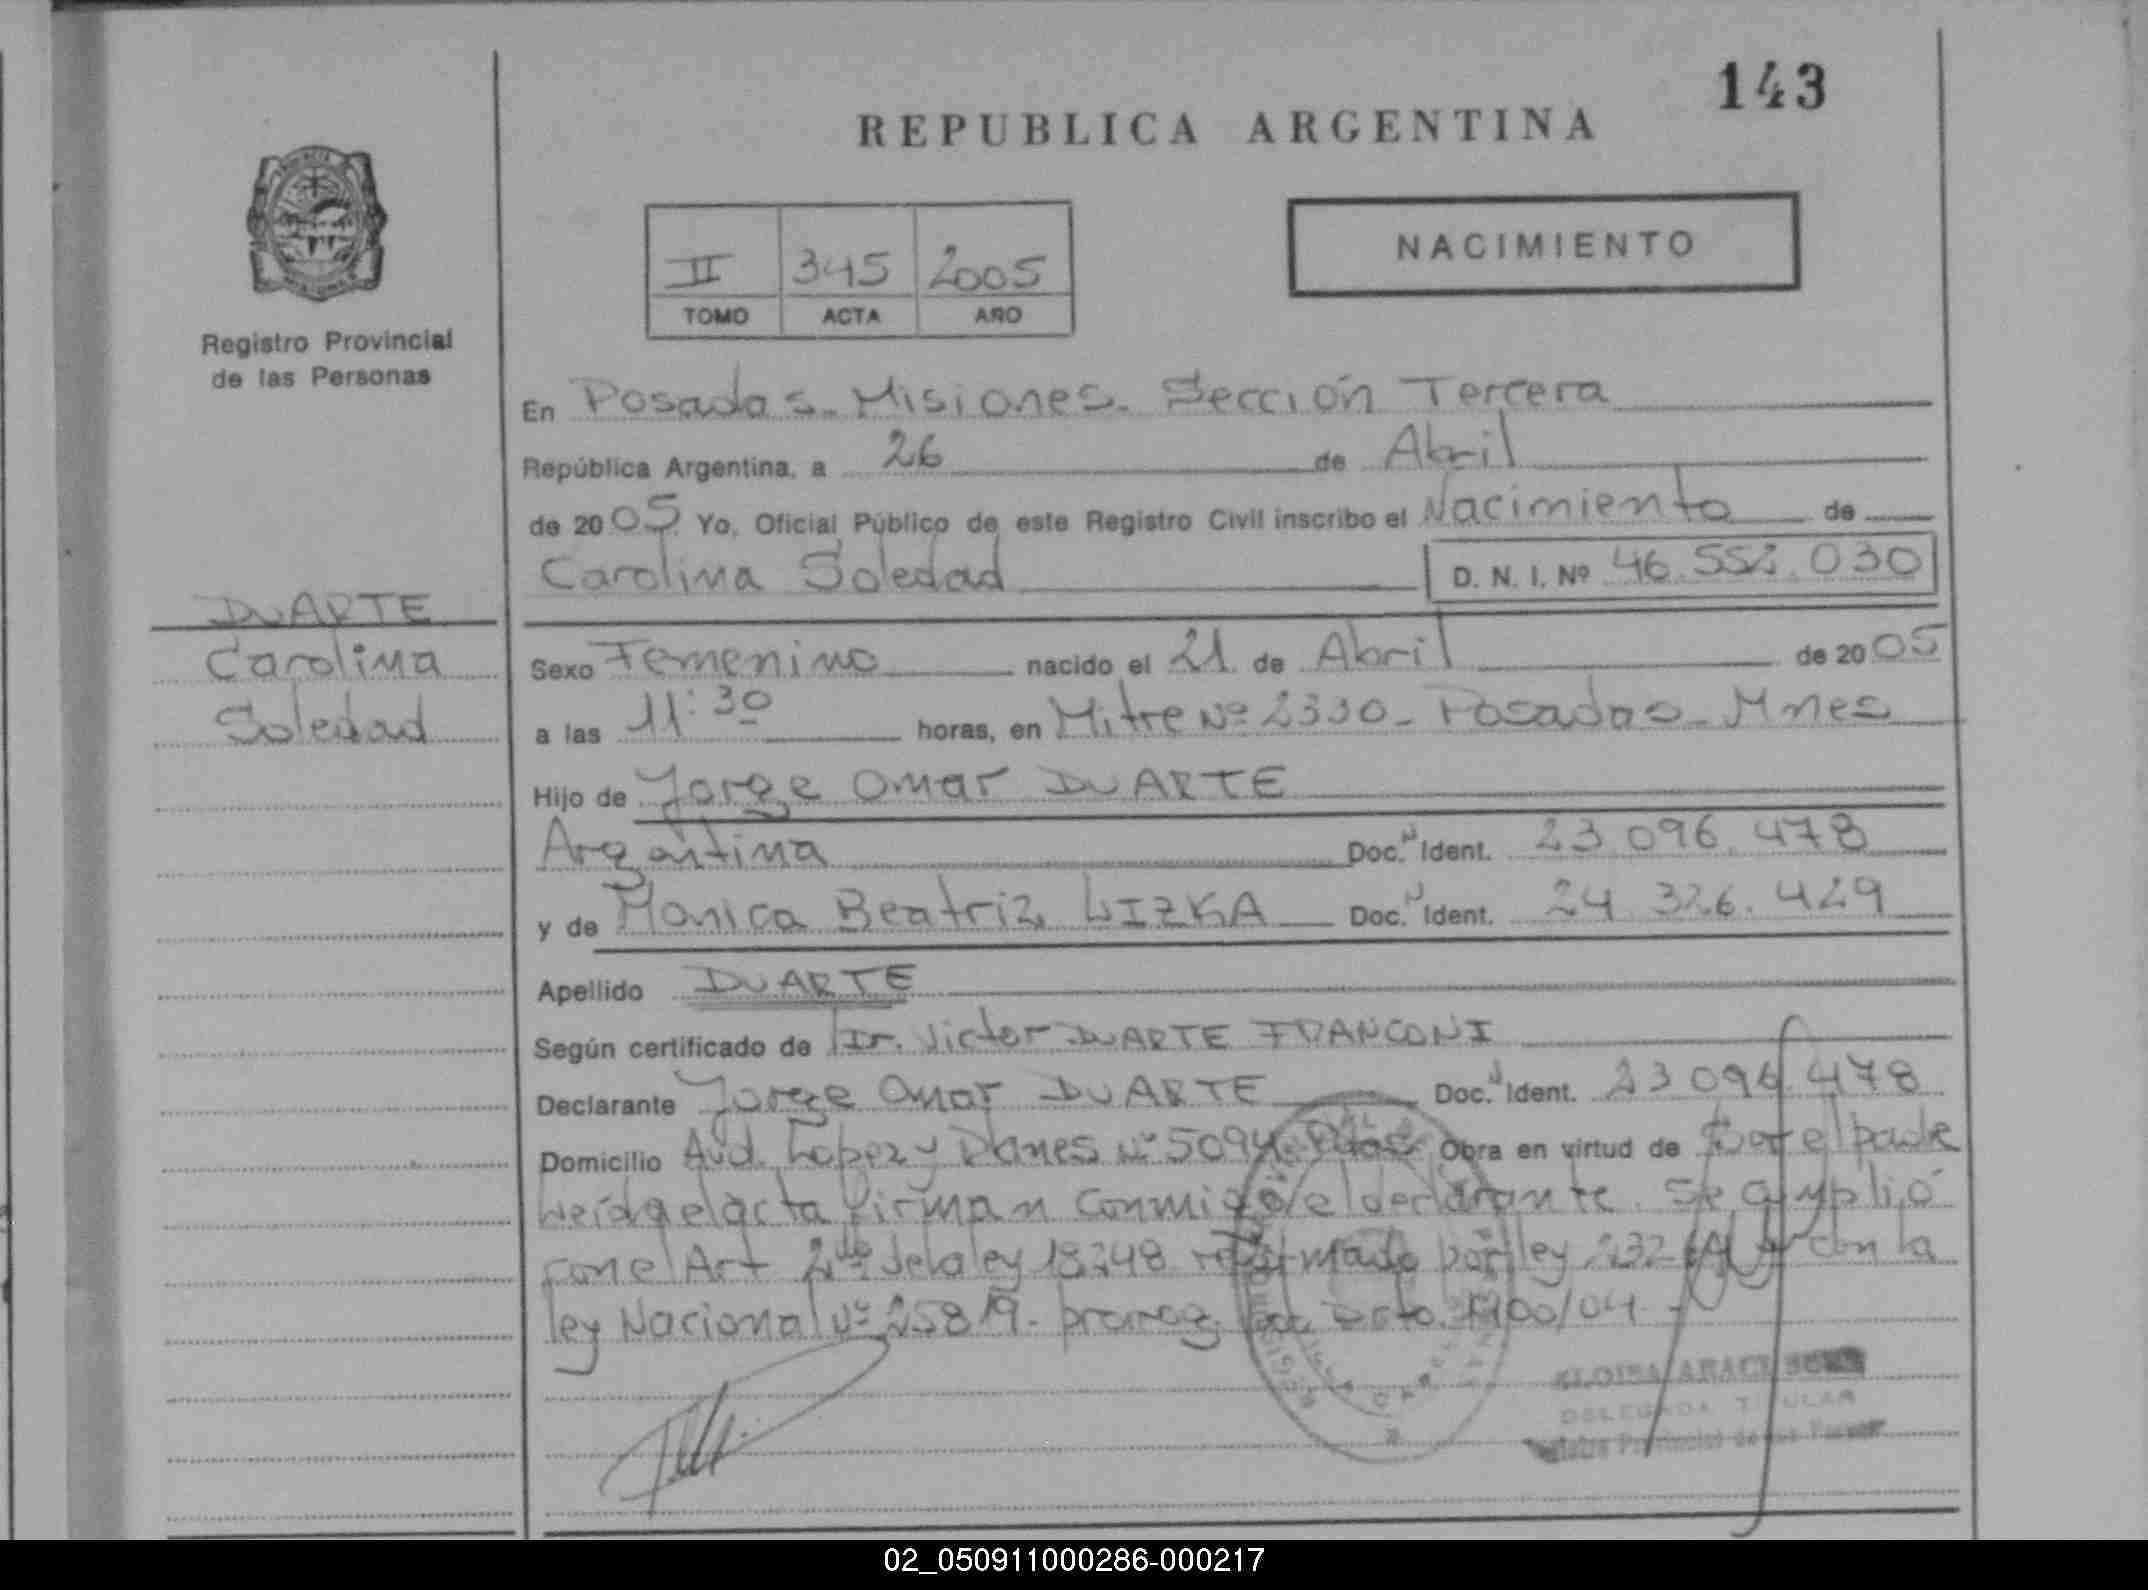 143
REPUBLICA ARGENTINA
NACIMIENTO
II 345 2005
TOMO ACTA AÑO
Registro Provincial
de las Personas
En Posadas - Misiones - Sección Tercera
República Argentina, a 26 de Abril
de 2005 Yo, Oficial Público de este Registro Civil inscribo el Nacimiento de
Carolina Soledad
D. N. I. Nº 46.553.030
DUARTE
Carolina
Soledad
Sexo Femenino nacido el 21 de Abril de 2005
a las 11:30 horas, en Mitre Nº 2330 - Posadas - Mnes
Hijo de Jorge Omar DUARTE
Argentina Doc. Ident. 23 096.478
y de Monica Beatriz WIZKA Doc. Ident. 24.326.429
Apellido DUARTE
Según certificado de Dr. Victor DUARTE FRANCONI
Declarante Jorge Omar DUARTE Doc. Ident. 23 096.478
Domicilio Avd. Lopez y Planes Nº 5094 Pdas Obra en virtud de Ser el padre
Leida el acta firman conmigo el declarante. Se cumplió
con el Art 2do de la ley 18248 reformado por ley 232 con la
ley Nacional Nº 25819. por Dcto. 1100/04.
DELEGADA TITULAR
02_050911000286-000217